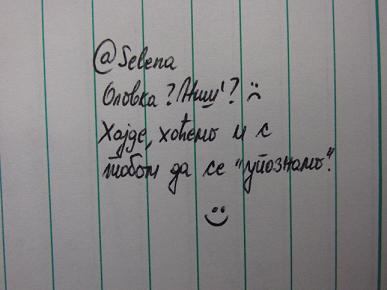 @Selena
Оловка? Ниш'? :(
Хајде, хоћемо и с
тобом да се "упознамо".
:)